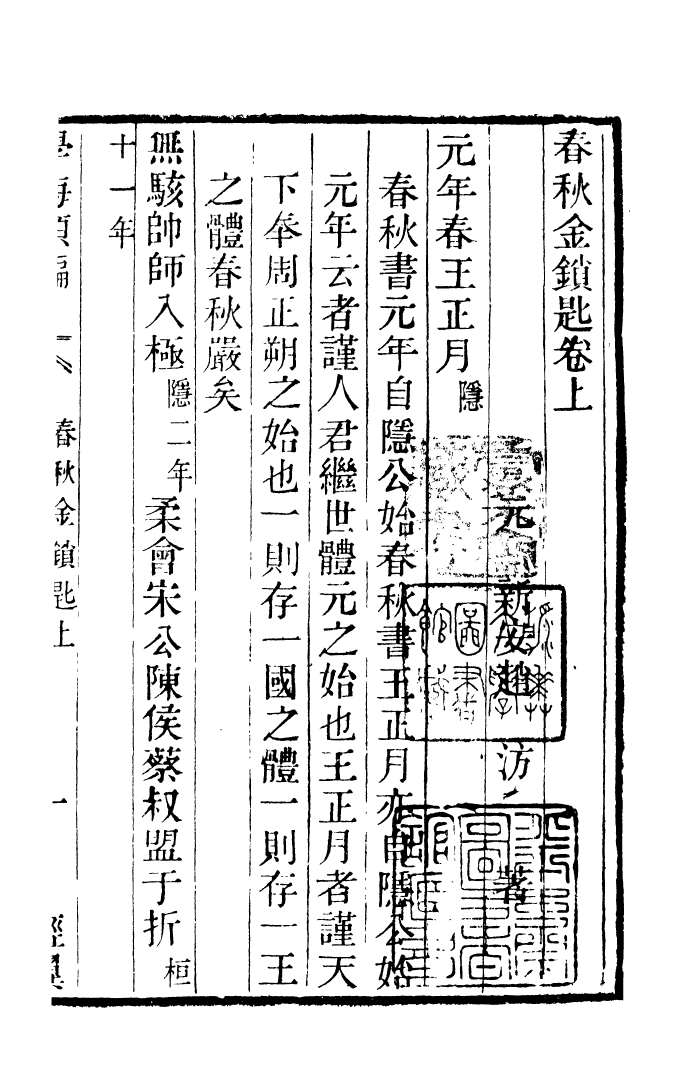 春秋金鎖匙卷上
元 新安趙 汸 著
元年春王正月隱
春秋書元年自隱公始春秋書王正月亦自隱公始
元年云者謹人君繼世體元之始也王正月者謹天
下奉周正朔之始也一則存一國之體一則存一王
之體春秋嚴矣
無駭帥師入極隱二年柔會宋公陳侯蔡叔盟于折桓
十一年
學海類編
春秋金鎖匙上
一
經翼